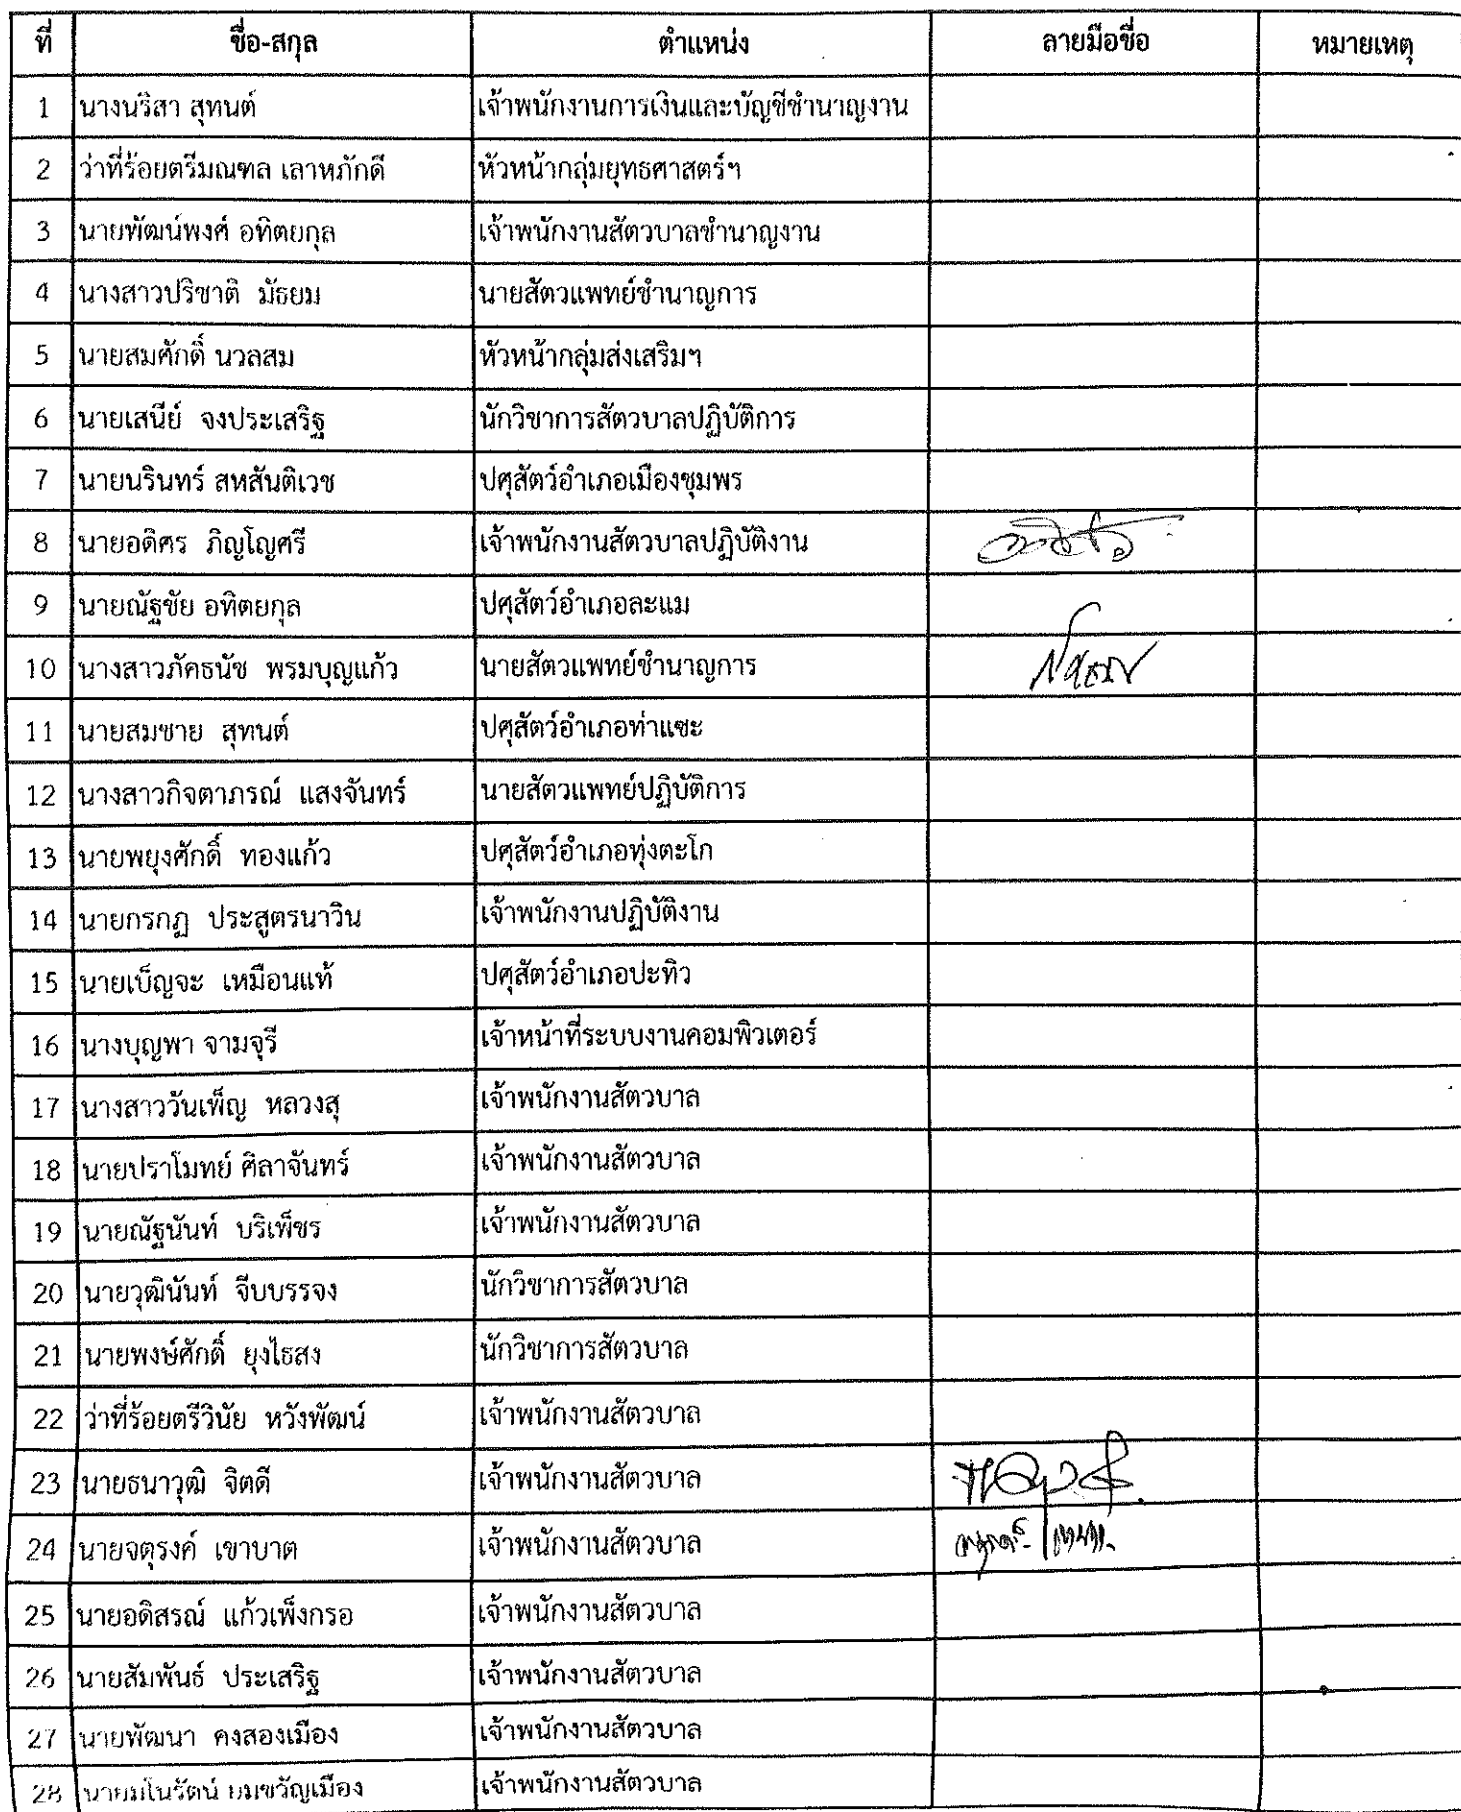 ที่ ชื่อ-สกุล ตำแหน่ง ลายมือชื่อ หมายเหตุ
1 นางนริสา สุทนต์ เจ้าพนักงานการเงินและบัญชีชำนาญงาน
2 ว่าที่ร้อยตรีมณฑล เลาหภักดี หัวหน้ากลุ่มยุทธศาสตร์ฯ
3 นายพัฒน์พงศ์ อทิตยกุล เจ้าพนักงานสัตวบาลชำนาญงาน
4 นางสาวปริชาติ มัธยม นายสัตวแพทย์ชำนาญการ
5 นายสมศักดิ์ นวลสม หัวหน้ากลุ่มส่งเสริมฯ
6 นายเสนีย์ จงประเสริฐ นักวิชาการสัตวบาลปฏิบัติการ
7 นายนรินทร์ สหสันติเวช ปศุสัตว์อำเภอเมืองชุมพร
8 นายอดิศร ภิญโญศรี เจ้าพนักงานสัตวบาลปฏิบัติงาน
9 นายณัฐชัย อทิตยกุล ปศุสัตว์อำเภอละแม
10 นางสาวภัคธนัช พรมบุญแก้ว นายสัตวแพทย์ชำนาญการ
11 นายสมชาย สุทนต์ ปศุสัตว์อำเภอท่าแซะ
12 นางสาวกิจตาภรณ์ แสงจันทร์ นายสัตวแพทย์ปฏิบัติการ
13 นายพยุงศักดิ์ ทองแก้ว ปศุสัตว์อำเภอทุ่งตะโก
14 นายกรกฎ ประสูตรนาวิน เจ้าพนักงานปฏิบัติงาน
15 นายเบ็ญจะ เหมือนแท้ ปศุสัตว์อำเภอปะทิว
16 นางบุญพา จามจุรี เจ้าหน้าที่ระบบงานคอมพิวเตอร์
17 นางสาววันเพ็ญ หลวงสุ เจ้าพนักงานสัตวบาล
18 นายปราโมทย์ ศิลาจันทร์ เจ้าพนักงานสัตวบาล
19 นายณัฐนันท์ บริเพ็ชร เจ้าพนักงานสัตวบาล
20 นายวุฒินันท์ จีบบรรจง นักวิชาการสัตวบาล
21 นายพงษ์ศักดิ์ ยุงไธสง นักวิชาการสัตวบาล
22 ว่าที่ร้อยตรีวินัย หวังพัฒน์ เจ้าพนักงานสัตวบาล
23 นายธนาวุฒิ จิตดี เจ้าพนักงานสัตวบาล
24 นายจตุรงค์ เขาบาต เจ้าพนักงานสัตวบาล
25 นายอดิสรณ์ แก้วเพ็งกรอ เจ้าพนักงานสัตวบาล
26 นายสัมพันธ์ ประเสริฐ เจ้าพนักงานสัตวบาล
27 นายพัฒนา คงสองเมือง เจ้าพนักงานสัตวบาล
28 นายมโนรัตน์ ยมขวัญเมือง เจ้าพนักงานสัตวบาล